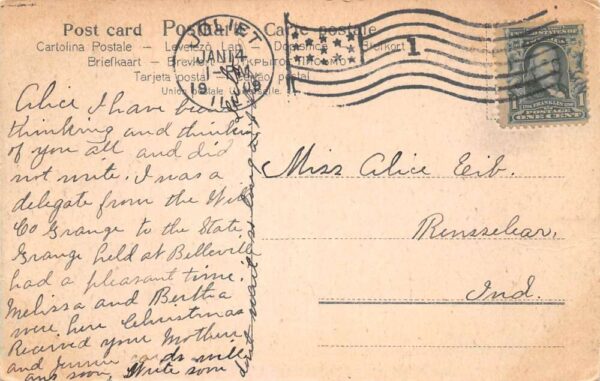 Post card Postkarte Carte postale
Cartolina Postale — Levelező Lap — Dopisnice — Briefkort
Briefkaart — Brevkort — Открытое письмо
Tarjeta postal — postal
Union postale universelle
JOLIET
JAN 14
1908
ILL.
1
UNITED STATES OF
1 FRANKLIN
POSTAGE
ONE CENT
Alice I have been
thinking and thinking
of you all and did
not write. I was a
delegate from the Will
Co Grange to the State
Grange held at Belleville
had a pleasant time.
Melissa and Bertha
were here Christmas
Received your Mother
and Jennie cards will
ans soon, Write soon
dont wait so long as
Miss Alice Eib.
Rensselear,
Ind.